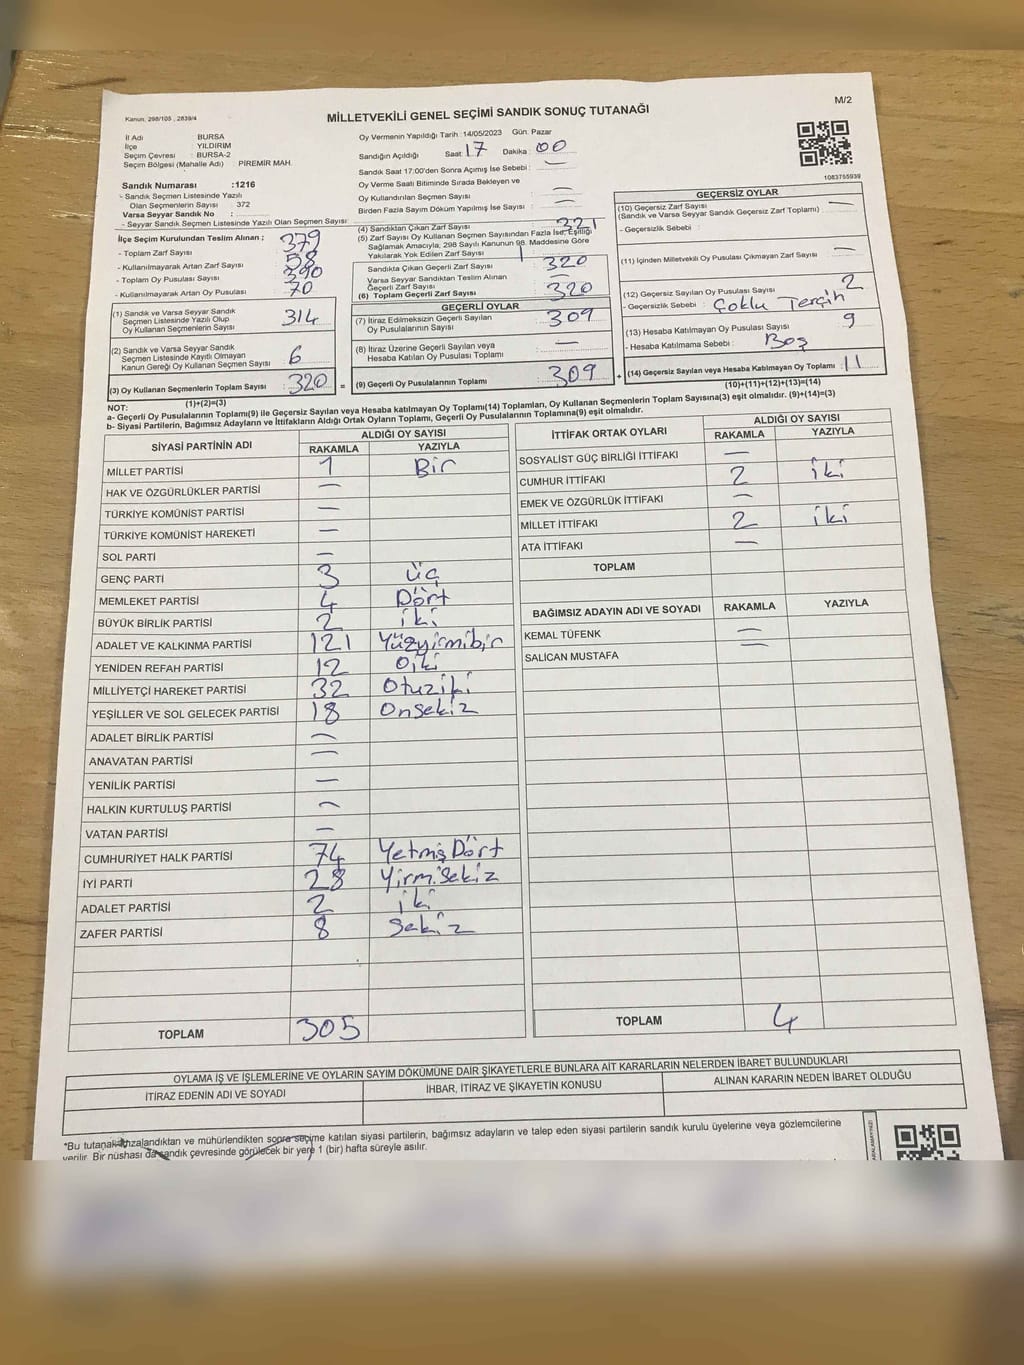 M/2
MİLLETVEKİLİ GENEL SEÇİMİ SANDIK SONUÇ TUTANAĞI
Kanun, 298/105 , 2839/4
İl Adı BURSA
İlçe YILDIRIM
Seçim Çevresi : BURSA-2
Seçim Bölgesi (Mahalle Adı) : PİREMİR MAH.
Oy Vermenin Yapıldığı Tarih : 14/05/2023 Gün. Pazar
Sandığın Açıldığı Saat: 17 Dakika: 00
Sandık Saat 17:00'den Sonra Açımış İse Sebebi : —
Oy Verme Saati Bitiminde Sırada Bekleyen ve
Oy Kullandırılan Seçmen Sayısı : —
Birden Fazla Sayım Döküm Yapılmış İse Sayısı : —
1083755939
Sandık Numarası :1216
- Sandık Seçmen Listesinde Yazılı
Olan Seçmenlerin Sayısı : 372
Varsa Seyyar Sandık No :
- Seyyar Sandık Seçmen Listesinde Yazılı Olan Seçmen Sayısı:
İlçe Seçim Kurulundan Teslim Alınan ;
- Toplam Zarf Sayısı : 379
- Kullanılmayarak Artan Zarf Sayısı : 58
- Toplam Oy Pusulası Sayısı : 390
- Kullanılmayarak Artan Oy Pusulası : 70
(1) Sandık ve Varsa Seyyar Sandık
Seçmen Listesinde Yazılı Olup
Oy Kullanan Seçmenlerin Sayısı : 314
(2) Sandık ve Varsa Seyyar Sandık
Seçmen Listesinde Kayıtlı Olmayan
Kanun Gereği Oy Kullanan Seçmen Sayısı : 6
(3) Oy Kullanan Seçmenlerin Toplam Sayısı : 320 =
(1)+(2)=(3)
(4) Sandıktan Çıkan Zarf Sayısı : 321
(5) Zarf Sayısı Oy Kullanan Seçmen Sayısından Fazla İse, Eşitliği
Sağlamak Amacıyla, 298 Sayılı Kanunun 98. Maddesine Göre
Yakılarak Yok Edilen Zarf Sayısı : 1
Sandıkta Çıkan Geçerli Zarf Sayısı : 320
Varsa Seyyar Sandıktan Teslim Alınan
Geçerli Zarf Sayısı : —
(6) Toplam Geçerli Zarf Sayısı : 320
GEÇERLİ OYLAR
(7) İtiraz Edilmeksizin Geçerli Sayılan
Oy Pusulalarının Sayısı : 309
(8) İtiraz Üzerine Geçerli Sayılan veya
Hesaba Katılan Oy Pusulası Toplamı : —
(9) Geçerli Oy Pusulalarının Toplamı : 309 +
GEÇERSİZ OYLAR
(10) Geçersiz Zarf Sayısı : —
(Sandık ve Varsa Seyyar Sandık Geçersiz Zarf Toplamı)
- Geçersizlik Sebebi :
(11) İçinden Milletvekili Oy Pusulası Çıkmayan Zarf Sayısı : —
(12) Geçersiz Sayılan Oy Pusulası Sayısı : 2
- Geçersizlik Sebebi : Çoklu Tercih
(13) Hesaba Katılmayan Oy Pusulası Sayısı : 9
- Hesaba Katılmama Sebebi : Boş
(14) Geçersiz Sayılan veya Hesaba Katılmayan Oy Toplamı : 11
(10)+(11)+(12)+(13)=(14)
NOT:
a- Geçerli Oy Pusulalarının Toplamı(9) ile Geçersiz Sayılan veya Hesaba katılmayan Oy Toplamı(14) Toplamları, Oy Kullanan Seçmenlerin Toplam Sayısına(3) eşit olmalıdır. (9)+(14)=(3)
b- Siyasi Partilerin, Bağımsız Adayların ve İttifakların Aldığı Ortak Oyların Toplamı, Geçerli Oy Pusulalarının Toplamına(9) eşit olmalıdır.
SİYASİ PARTİNİN ADI ALDIĞI OY SAYISI
RAKAMLA YAZIYLA
MİLLET PARTİSİ 1 Bir
HAK VE ÖZGÜRLÜKLER PARTİSİ —
TÜRKİYE KOMÜNİST PARTİSİ —
TÜRKİYE KOMÜNİST HAREKETİ —
SOL PARTİ —
GENÇ PARTİ 3 Üç
MEMLEKET PARTİSİ 4 Dört
BÜYÜK BİRLİK PARTİSİ 2 iki
ADALET VE KALKINMA PARTİSİ 121 Yüzyirmibir
YENİDEN REFAH PARTİSİ 12 Oiki
MİLLİYETÇİ HAREKET PARTİSİ 32 Otuziki
YEŞİLLER VE SOL GELECEK PARTİSİ 18 Onsekiz
ADALET BİRLİK PARTİSİ —
ANAVATAN PARTİSİ —
YENİLİK PARTİSİ —
HALKIN KURTULUŞ PARTİSİ —
VATAN PARTİSİ —
CUMHURİYET HALK PARTİSİ 74 YetmişDört
İYİ PARTİ 28 YirmiSekiz
ADALET PARTİSİ 2 iki
ZAFER PARTİSİ 8 Sekiz
TOPLAM 305
İTTİFAK ORTAK OYLARI ALDIĞI OY SAYISI
RAKAMLA YAZIYLA
SOSYALİST GÜÇ BİRLİĞİ İTTİFAKI —
CUMHUR İTTİFAKI 2 iki
EMEK VE ÖZGÜRLÜK İTTİFAKI —
MİLLET İTTİFAKI 2 iki
ATA İTTİFAKI —
TOPLAM
BAĞIMSIZ ADAYIN ADI VE SOYADI RAKAMLA YAZIYLA
KEMAL TÜFENK —
SALİCAN MUSTAFA —
TOPLAM 4
OYLAMA İŞ VE İŞLEMLERİNE VE OYLARIN SAYIM DÖKÜMÜNE DAİR ŞİKAYETLERLE BUNLARA AİT KARARLARIN NELERDEN İBARET BULUNDUKLARI
İTİRAZ EDENİN ADI VE SOYADI İHBAR, İTİRAZ VE ŞİKAYETİN KONUSU ALINAN KARARIN NEDEN İBARET OLDUĞU
*Bu tutanak imzalandıktan ve mühürlendikten sonra seçime katılan siyasi partilerin, bağımsız adayların ve talep eden siyasi partilerin sandık kurulu üyelerine veya gözlemcilerine
verilir. Bir nüshası da sandık çevresinde görülecek bir yere 1 (bir) hafta süreyle asılır.